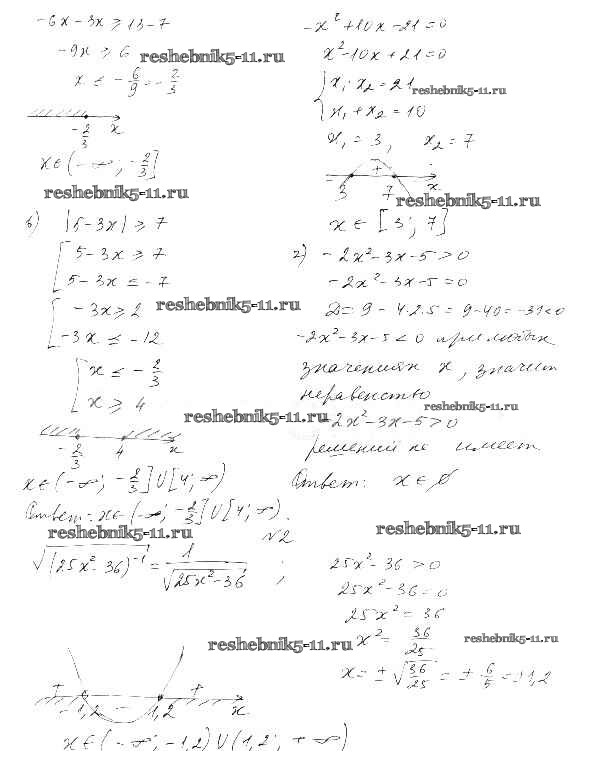 -6x - 3x ≥ 13 - 7
-9x ≥ 6
reshebnik5-11.ru
x ≤ -6/9 = -2/3
-2/3 x
x ∈ (-∞; -2/3]
reshebnik5-11.ru
в) |5-3x| ≥ 7
[ 5-3x ≥ 7
5-3x ≤ -7
[ -3x ≥ 2
-3x ≤ -12
reshebnik5-11.ru
[ x ≤ -2/3
x ≥ 4
reshebnik5-11.ru
-2/3 4 x
x ∈ (-∞; -2/3] U [4; ∞)
Ответ: x ∈ (-∞; -2/3] U [4; ∞).
-x² + 10x - 21 = 0
x² - 10x + 21 = 0
{ x₁ · x₂ = 21
reshebnik5-11.ru
x₁ + x₂ = 10
x₁ = 3, x₂ = 7
- + -
3 7 x
reshebnik5-11.ru
x ∈ [3; 7]
г) -2x² - 3x - 5 > 0
-2x² - 3x - 5 = 0
D = 9 - 4·2·5 = 9 - 40 = -31 < 0
-2x² - 3x - 5 < 0 при любых
значениях x, значит
неравенство
reshebnik5-11.ru
-2x² - 3x - 5 > 0
решений не имеет.
Ответ: x ∈ ∅
reshebnik5-11.ru
№2
√((25x² - 36)⁻¹) = 1/√(25x² - 36) ;
reshebnik5-11.ru
25x² - 36 > 0
25x² - 36 = 0
25x² = 36
reshebnik5-11.ru
x² = 36/25
reshebnik5-11.ru
x = ±√(36/25) = ± 6/5 = ±1,2
+ - +
-1,2 1,2 x
x ∈ (-∞; -1,2) U (1,2; +∞)